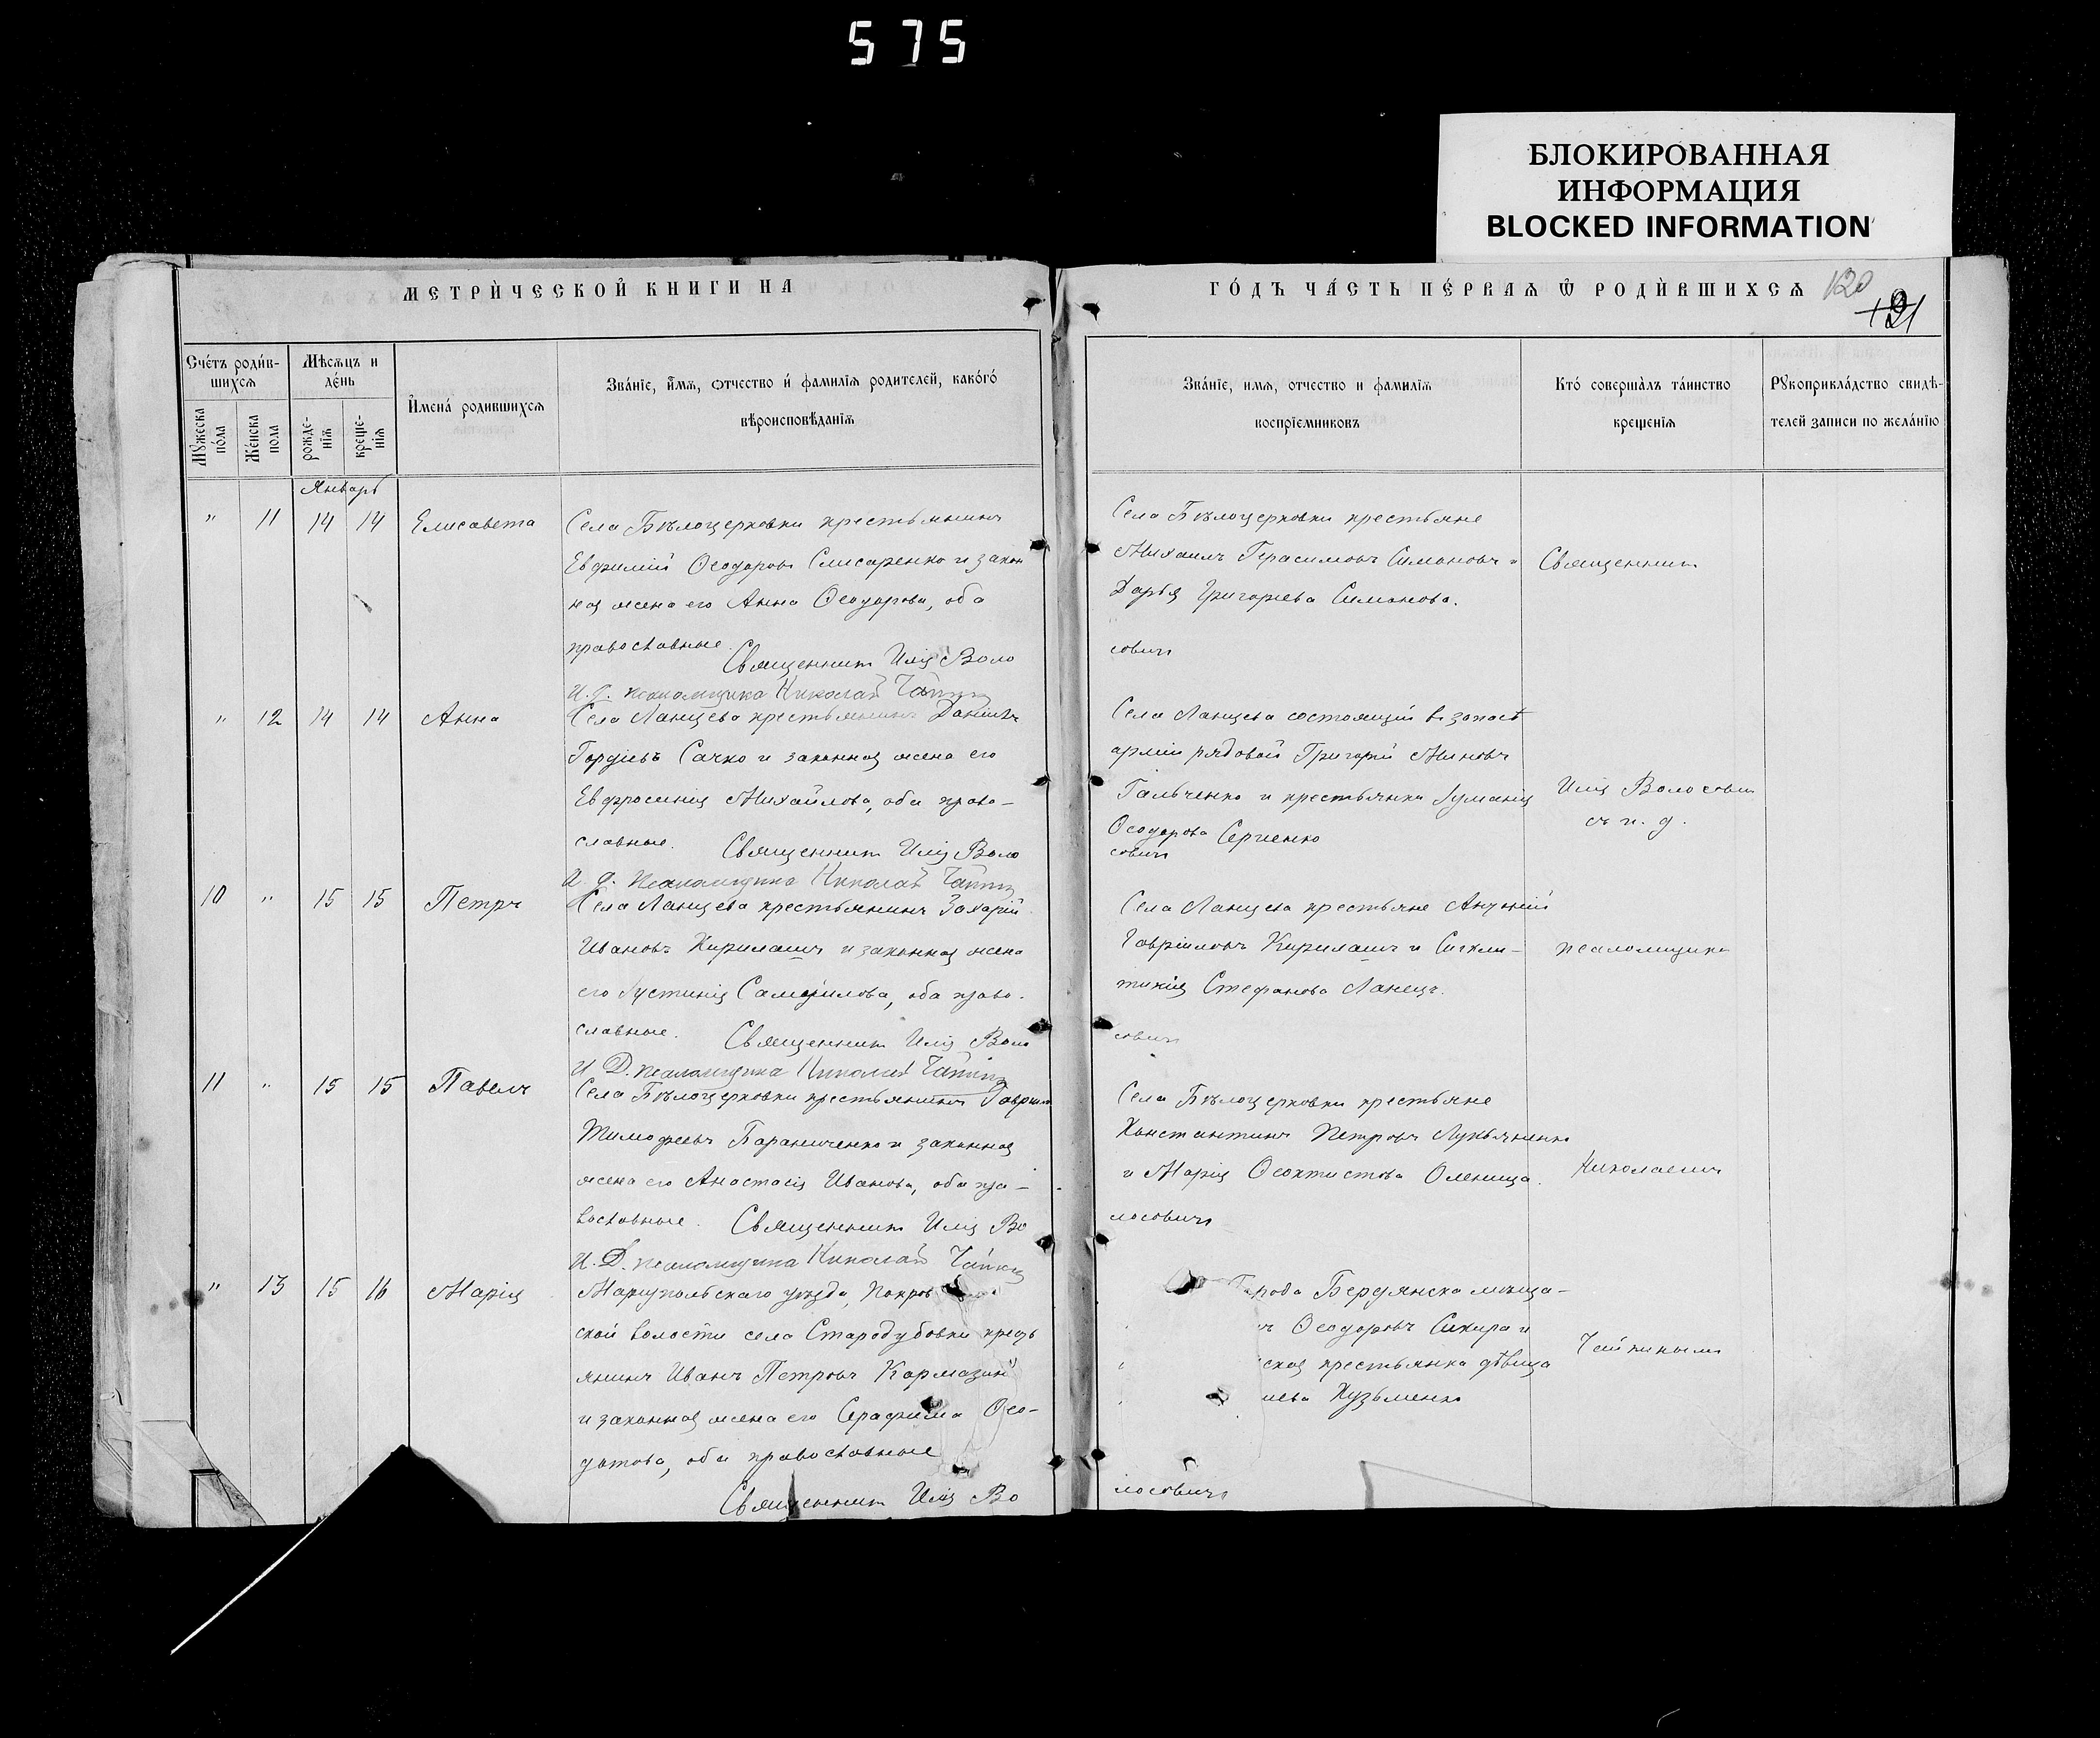 575
БЛОКИРОВАННАЯ
ИНФОРМАЦИЯ
BLOCKED INFORMATION
МЕТРИЧЕСКОЙ КНИГИ НА
ГОДЪ ЧАСТЬ ПЕРВАЯ Ѿ РОДИВШИХСЯ
120
121
Счетъ родив-
шихся
Мѣсяцъ и
день
Имена родившихся
Званіе, имя, отчество и фамилія родителей, какого
вѣроисповѣданія
Мужеска пола
Женска пола
рожде-
нія
креще-
нія
Званіе, имя, отчество и фамилія
воспріемниковъ
Кто совершалъ таинство
крещенія
Рукоприкладство свидѣ-
телей записи по желанію
Январь
" 11 14 14 Елисавета
Села Бѣлоцерковки крестьянинъ
Евфимій Ѳеодоровъ Слисаренко и закон
ная жена его Анна Ѳеодорова, оба
православные.
Священникъ Илія Воло
И. д. псаломщика Николай Чайкинъ
Села Бѣлоцерковки крестьяне
Михаилъ Герасимовъ Симоновъ и
Дарья Григорьева Симонова.
совичъ
Священникъ
" 12 14 14 Анна
Села Ланцева крестьянинъ Даніилъ
Гордіевъ Сачко и законная жена его
Евфросинія Михайлова, оба право-
славные. Священникъ Илія Воло
И. д. псаломщика Николай Чайкинъ
Села Ланцева состоящій въ запасѣ
арміи рядовой Григорій Миновъ
Гальченко и крестьянка Іуманія
Ѳеодорова Сергіенко
совичъ
Илія Волосович
съ и. д.
10 " 15 15 Петръ
Села Ланцева крестьянинъ Захарій
Ивановъ Кирилашъ и законная жена
его Іустинія Самуилова, оба право-
славные. Священникъ Илія Воло
И Д. псаломщика Николай Чайкинъ
Села Ланцева крестьяне
Гавріиловъ Кирилашъ и Сигкли-
тикія Стефанова Ланецъ.
совичъ
псаломщика
11 " 15 15 Павелъ
Села Бѣлоцерковки крестьянинъ Гавріилъ
Тимофеевъ Бараниченко и законная
жена его Анастасія Иванова, оба пра-
вославные. Священникъ Илія Во
И. Д. псаломщика Николай Чайкинъ
Села Бѣлоцерковки крестьяне
Константинъ Петровъ Лукьяненко
и Марія Ѳеоктистова Оленица.
лосовичъ
Николаемъ
" 13 15 16 Марія
Маріупольскаго уѣзда, Покров
ской волости села Стародубовки кресть
янинъ Иванъ Петровъ Кармазинъ
и законная жена его Серафима Ѳео-
датова, оба православные
Священникъ Илія Во
Города Бердянска мѣща-
нъ Ѳеодоровъ Сикира и
ская крестьянка дѣвица
иева Кузьменко
лосовичъ
Чайкинымъ